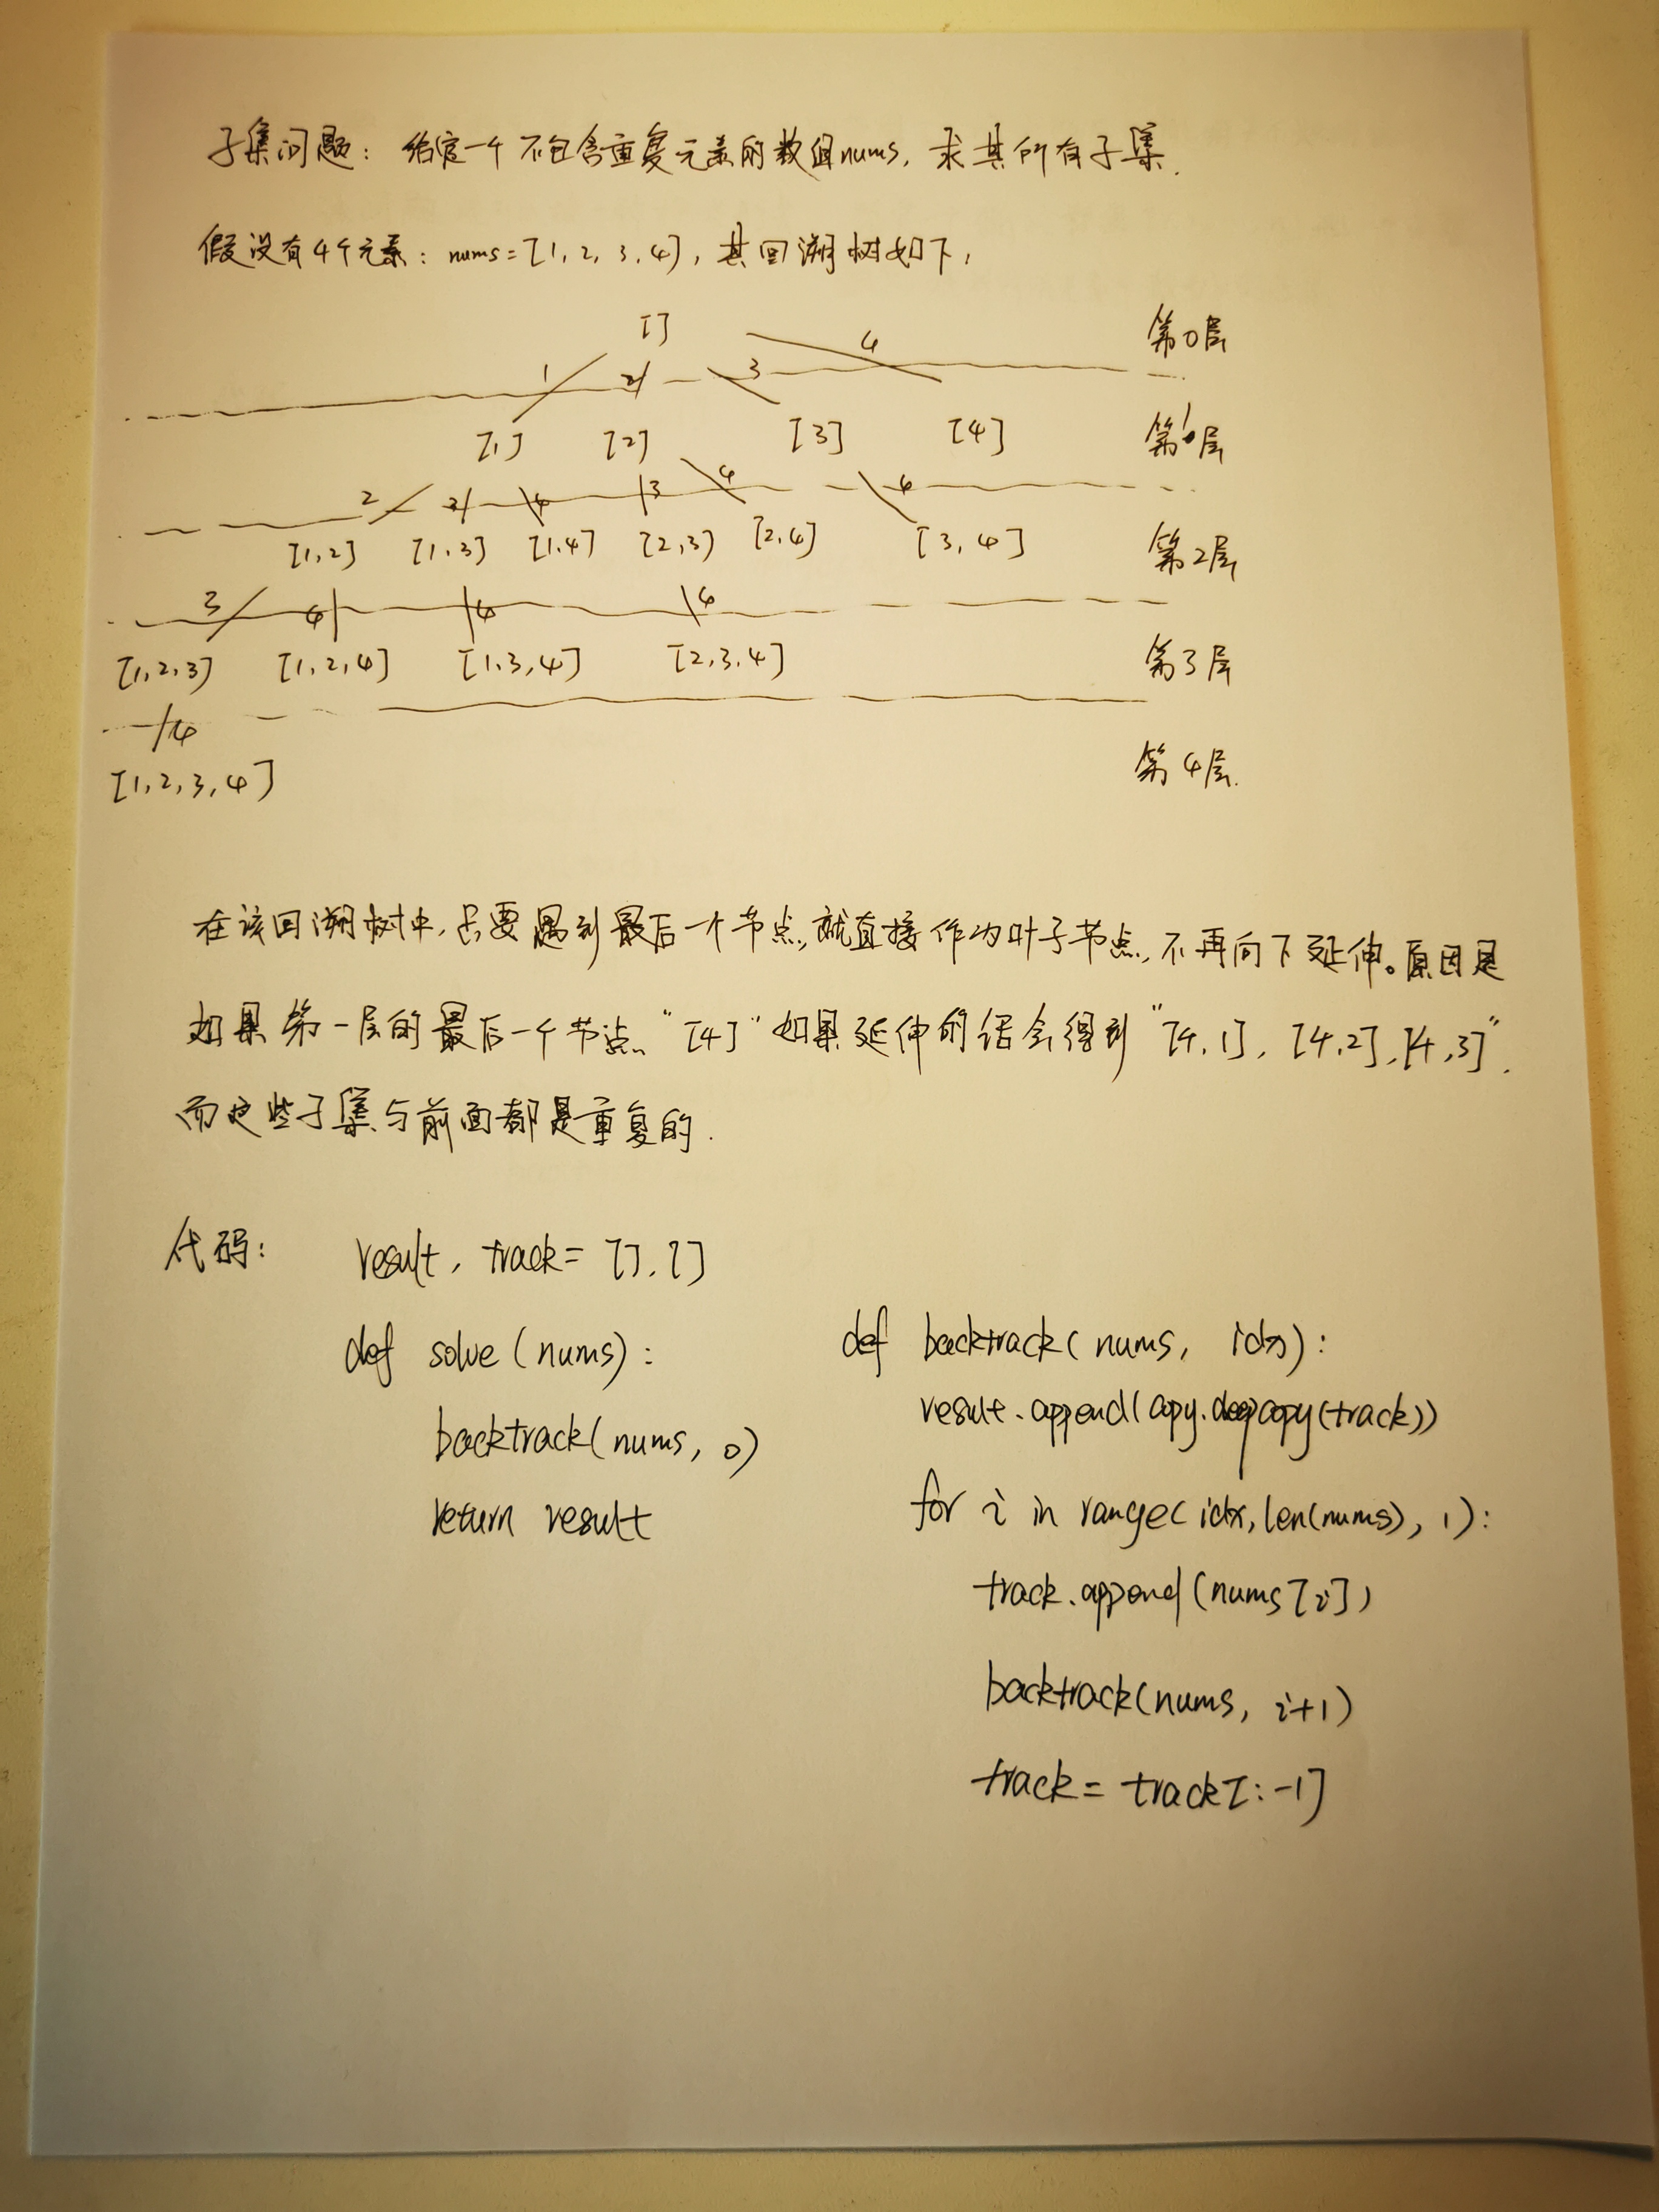 子集问题：给定一个不包含重复元素的数组nums，求其所有子集.
假设有4个元素：nums=[1,2,3,4]，其回溯树如下，
[] 第0层
1 2 3 4
[1] [2] [3] [4] 第1层
2 3 4 3 4 4
[1,2] [1,3] [1,4] [2,3] [2,4] [3,4] 第2层
3 4 4 4
[1,2,3] [1,2,4] [1,3,4] [2,3,4] 第3层
4
[1,2,3,4] 第4层.
在该回溯树中，只要遇到最后一个节点，就直接作为叶子节点，不再向下延伸。原因是
如果第一层的最后一个节点“[4]”如果延伸的话会得到“[4,1], [4,2], [4,3]”.
而这些子集与前面都是重复的.
代码： result, track = [], []
def solve(nums):
backtrack(nums, 0)
return result
def backtrack(nums, idx):
result.append(copy.deepcopy(track))
for i in range(idx, len(nums), 1):
track.append(nums[i])
backtrack(nums, i+1)
track = track[:-1]